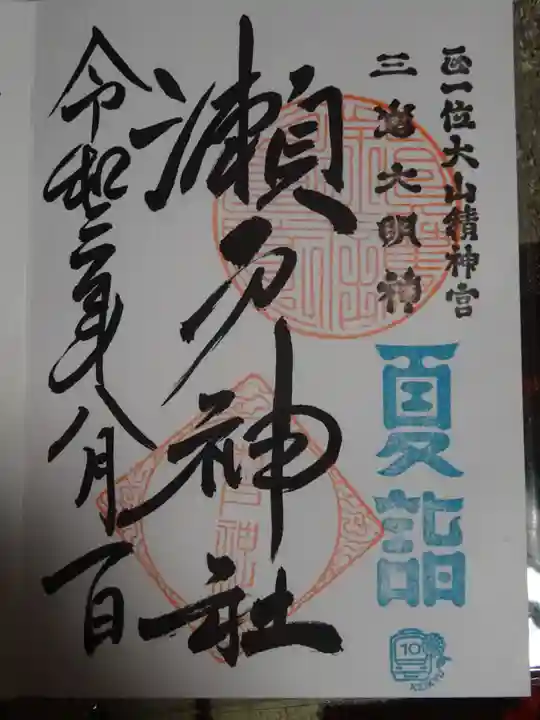 正一位大山積神宮
三島大明神
夏詣
10
KEIKYU
瀬戸神社
令和二年八月一日